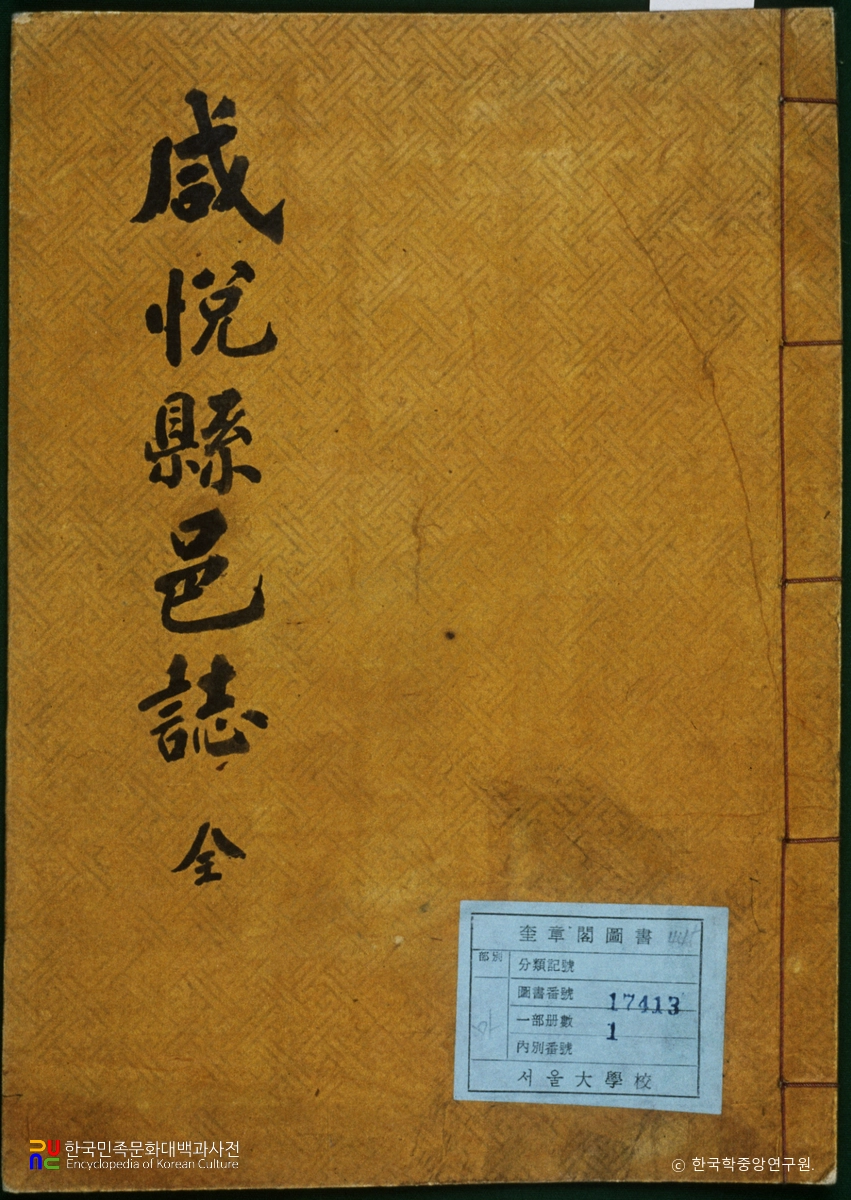 咸悅縣邑誌 全
奎章閣圖書
部別
分類記號
圖書番號 17413
一部册數 1
內別番號
서울大學校
한국민족문화대백과사전
Encyclopedia of Korean Culture
ⓒ 한국학중앙연구원.